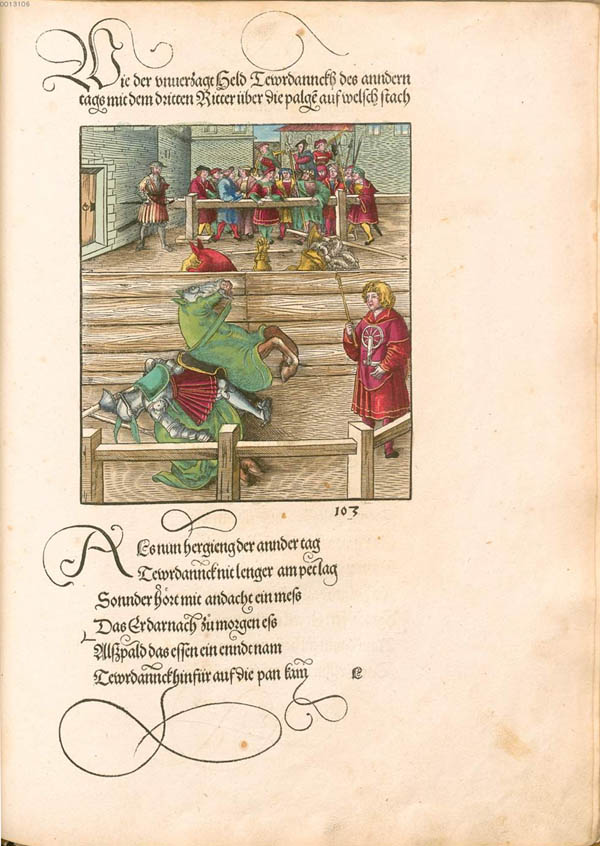 0013106
Wie der vnuerzagt Held Tewrdannckh des anndern
tags mit dem dritten Ritter über die palgē auf welsch stach
103
Als nun hergieng der annder tag
Tewrdannck nit lenger am pet lag
Sonnder hört mit andacht ein mess
Das Er darnach zů morgen ess
Alsspald das essen ein ennde nam
Tewrdannckh hinfür auf die pan kam